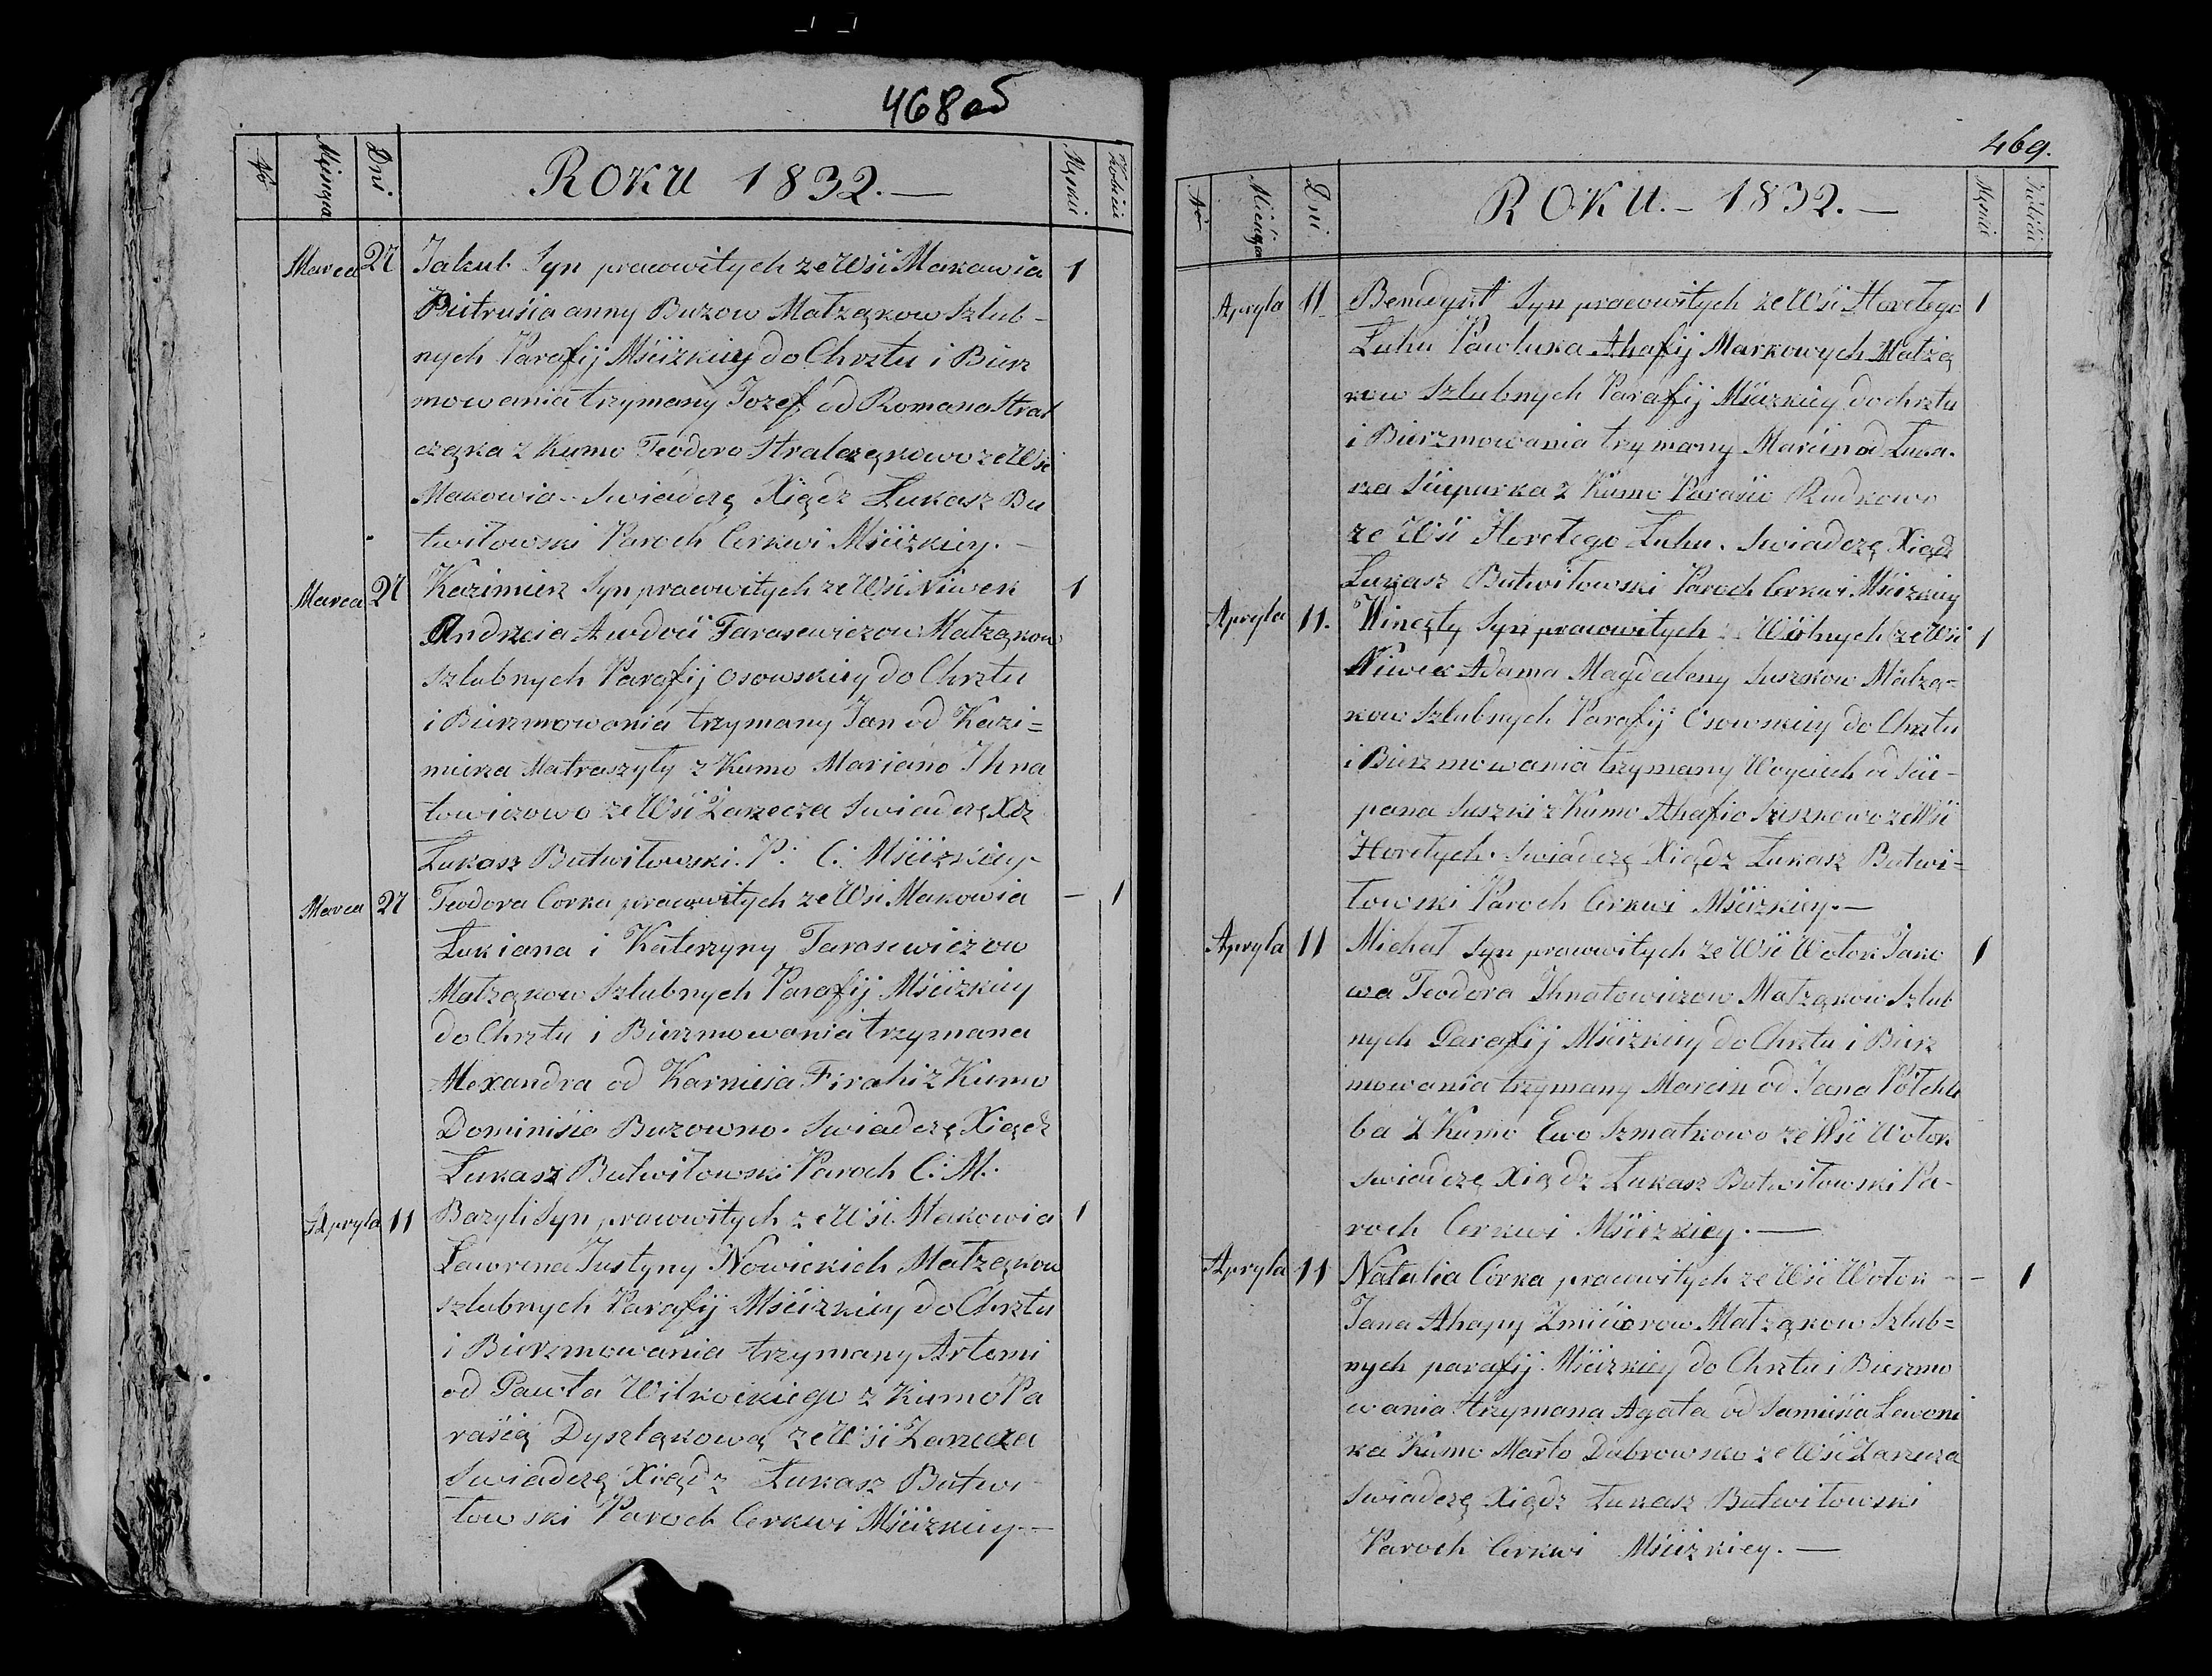 468 об
№ Miesiąca Dni ROKU 1832.— Męskiei Kobiéi
Marca 27 Jakub Syn pracowitych ze Wsi Makawia 1
Pietrusia anny Buzow Małżąkow Szlub-
nych Parafij Mścizkiey do Chrztu i Bierz
mowania trzymany Jozef od Romana Stral
cząka z Kumo Teodoro Stralcząkowo ze Wsi
Makowia. Swiadczę Xiądz Łukasz Bu
twiłowski Paroch Cerkwi Mścizkiey.—
Marca 27 Kazimierz Syn pracowitych ze Wsi Niwek 1
Andrzeia Awdoci Tarasewiczow Małżąkow
szlubnych Parafij Osowskiey do Chrztu
i Bierzmowania trzymany Jan od Kazi=
mierza Matraszyły z Kumo Mariano Ihna
towiczowo ze Wsi Zarzecza Swiadczę Xdz
Łukasz Butwiłowski. P: C: Mścizkiey-
Marca 27 Teodora Corka pracowitych ze Wsi Makowia — 1
Łukiana i Katerzyny Tarasewiczow
Małżąkow Szlubnych Parafij Mścizkiey
do Chrztu i Bierzmowania trzymana
Alexandra od Karnieia Firahi z Kumo
Dominisio Buzowno. Swiadczę Xiądz
Łukasz Butwiłowski Paroch C: M:
Apryla 11 Bazyli Syn pracowitych ze Wsi Makowia 1
Ławrena Justyny Nowickich Małżąkow
szlubnych Parafij Mścizkiey do Chrztu
i Bierzmowania trzymany Artemi
od Pawła Witkockiego z Kumo Pa
raśią Dyszląkową ze Wsi Zarzecza
Swiadczę Xiądz Łukasz Butwi
łowski Paroch Cerkwi Mścizkiey.—
469.
№ Miesiąca Dni ROKU.— 1832.— Męskiei Kobiéi
Apryla 11 Benedykt Syn pracowitych ze Wsi Horełego 1
Łuhu Pawluka Ahafij Markowych Małżą
kow Szlubnych Parafij Mścizkiey do chrztu
i Bierzmowania trzymany Marcin od Łuka.
rza Sciepurka z Kumo Paraśio Rudkowo
ze Wsi Horełego Łuhu. Swiadczę Xiądz
Łukasz Butwiłowski Paroch Cerkwi Mścizkiey
Apryla 11. Winęty Syn pracowitych Wolnych ze Wsi 1
Niwek Adama Magdaleny Suszkow Małżą=
kow Szlubnych Parafij Osowskiey do Chrztu
i Bierzmowania trzymany Woyciech od Scie-
pana Suszki z Kumo Ahafio Suszkowo ze Wsi
Horełych. Swiadczę Xiądz Łukasz Butwi=
łowski Paroch Cerkwi Mścizkiey.—
Apryla 11 Michał Syn pracowitych ze Wsi Wołok Jako 1
wa Teodora Ihnatowiczow Małżąkow Szlub
nych Parafij Mścizkiey do Chrztu i Bierz
mowania trzymany Marcin od Jana Półchle
ba z Kumo Ewo Szmatkowo ze Wsi Wołok
Swiadczę Xiądz Łukasz Butwiłowski Pa-
roch Cerkwi Mścizkiey.—
Apryla 11 Natalia Córka pracowitych ze Wsi Wołok — 1
Jana Ahapy Zmicierow Małżąkow Szlub=
nych parafij Mścizkiey do Chrztu i Bierzmo
wania trzymana Agata od Samusia Lewoni
ka Kumo Marto Dubrowsko ze Wsi Zarzecza
Swiadczę Xiądz Łukasz Butwiłowski
Paroch Cerkwi Mścizkiey.—